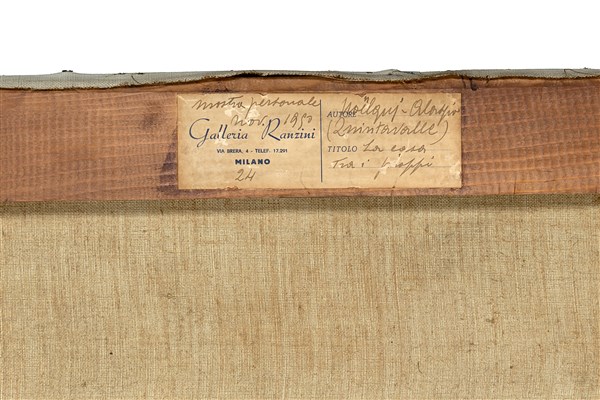 mostra personale
Nov. 1950
Galleria Ranzini
VIA BRERA, 4 - TELEF. 17.291
MILANO
24
AUTORE
(Quintavalle)
TITOLO La casa
Tra i pioppi